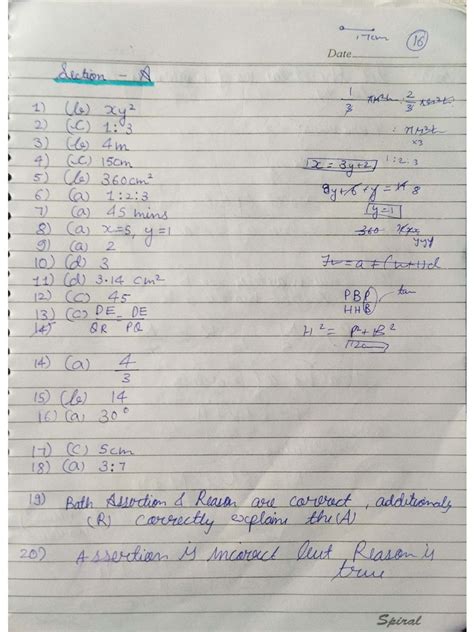 17cm
16
Date
Section - A
1) (b) xy²
2) (c) 1:3
3) (b) 4m
4) (c) 15cm
5) (b) 360cm²
6) (a) 1:2:3
7) (a) 45 mins
8) (a) x=5, y=1
9) (a) 2
10) (d) 3
11) (d) 3.14 cm²
12) (c) 45
13) (c) DE/QR = DE/PQ
14) (a) 4/3
15) (b) 14
16) (a) 30°
17) (c) 5cm
18) (a) 3:7
19) Both Assertion & Reason are correct, additionaly
(R) correctly explains the (A)
20) Assertion is incorrect but Reason is
true
x = 3y+2
1:2:3
y=1
360
PBP
HHB
tan
H² = P² + B²
Spiral